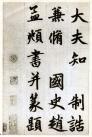 大夫知　制誥
兼脩　國史趙
孟頫書并篆題